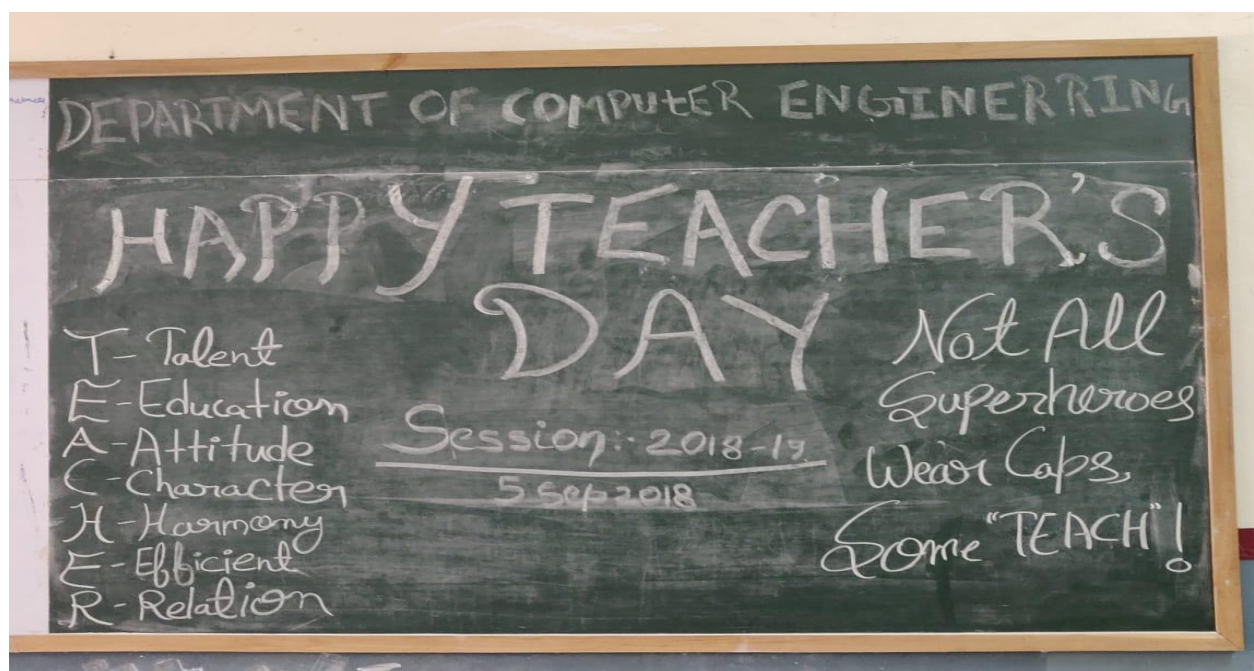 DEPARTMENT OF COMPUtER ENGINERRING
HAPPY TEACHER'S
DAY
T - Talent
E - Education
A - Attitude
C - Character
H - Harmony
E - Efficient
R - Relation
Session:- 2018-19
5 Sep 2018
Not All
Superheroes
Wear Caps,
Some "TEACH"!